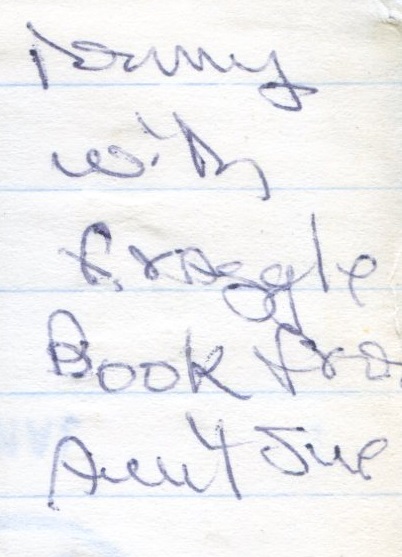 with
fraggle
Book fro
Aunt Sue